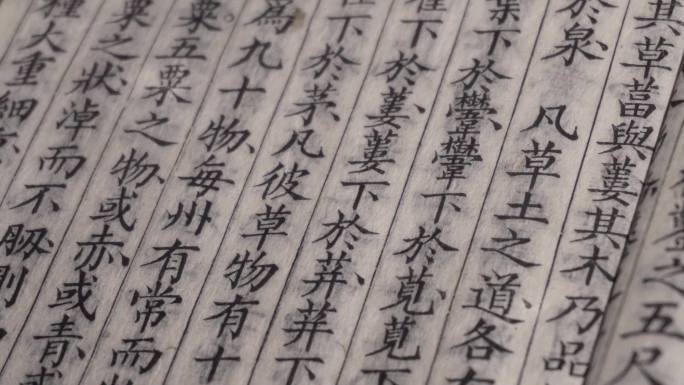 之五尺
其草菖與蔞其木乃品
於泉 凡草土之道各
葉下於下於莧莧
下於蔞蔞下於荓荓下
下於茅凡彼草物有十
為九十物每州有常而
粟五粟之物或赤或青或
粟之狀淖而不肕
種大重細